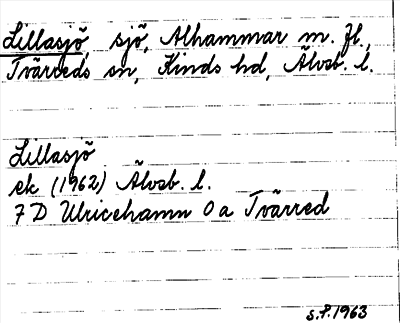 Lillasjö, sjö, Alhammar m. fl.,
Tvärreds sn, Kinds hd, Älvsb. l.
Lillasjö
ek (1962) Älvsb. l.
7 D Ulricehamn 0 a Tvärred
S.F. 1963